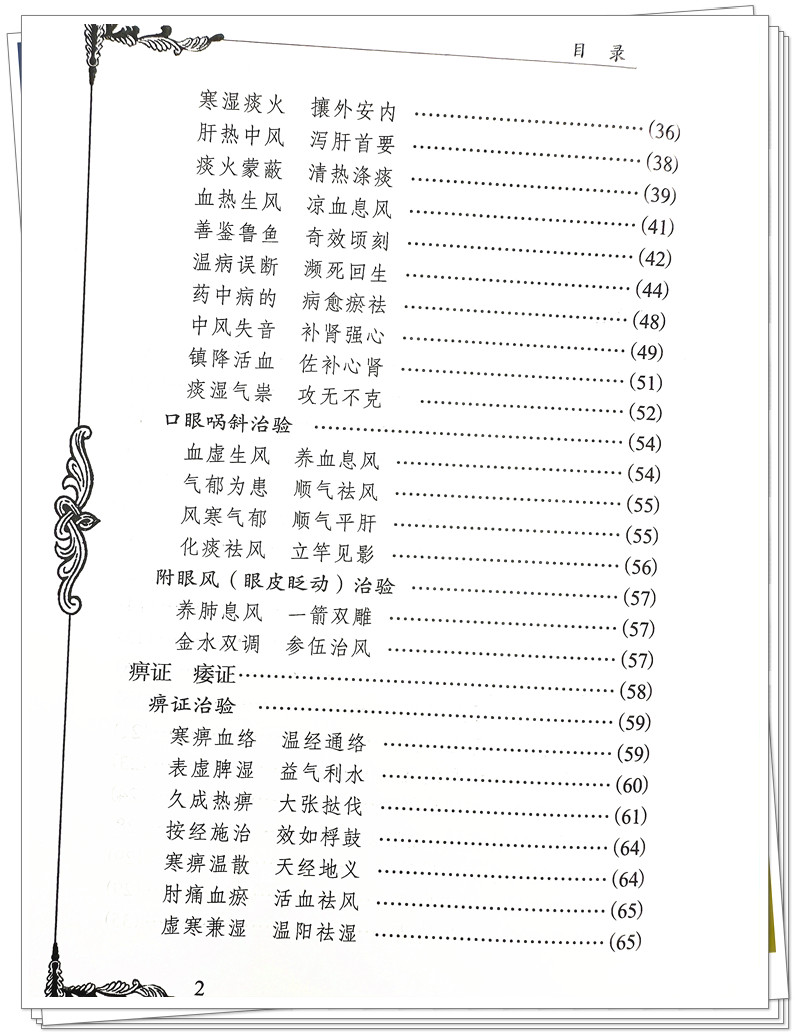 目 录
寒湿痰火 攘外安内 ……………………(36)
肝热中风 泻肝首要 ……………………(38)
痰火蒙蔽 清热涤痰 ……………………(39)
血热生风 凉血息风 ……………………(41)
善鉴鲁鱼 奇效顷刻 ……………………(42)
温病误断 濒死回生 ……………………(44)
药中病的 病愈瘀祛 ……………………(48)
中风失音 补肾强心 ……………………(49)
镇降活血 佐补心肾 ……………………(51)
痰湿气祟 攻无不克 ……………………(52)
口眼㖞斜治验 ……………………(54)
血虚生风 养血息风 ……………………(54)
气郁为患 顺气祛风 ……………………(55)
风寒气郁 顺气平肝 ……………………(55)
化痰祛风 立竿见影 ……………………(56)
附眼风（眼皮眨动）治验 ……………………(57)
养肺息风 一箭双雕 ……………………(57)
金水双调 参伍治风 ……………………(57)
痹证 痿证……………………(58)
痹证治验 ……………………(59)
寒痹血络 温经通络 ……………………(59)
表虚脾湿 益气利水 ……………………(60)
久成热痹 大张挞伐 ……………………(61)
按经施治 效如桴鼓 ……………………(64)
寒痹温散 天经地义 ……………………(64)
肘痛血瘀 活血祛风 ……………………(65)
虚寒兼湿 温阳祛湿 ……………………(65)
2